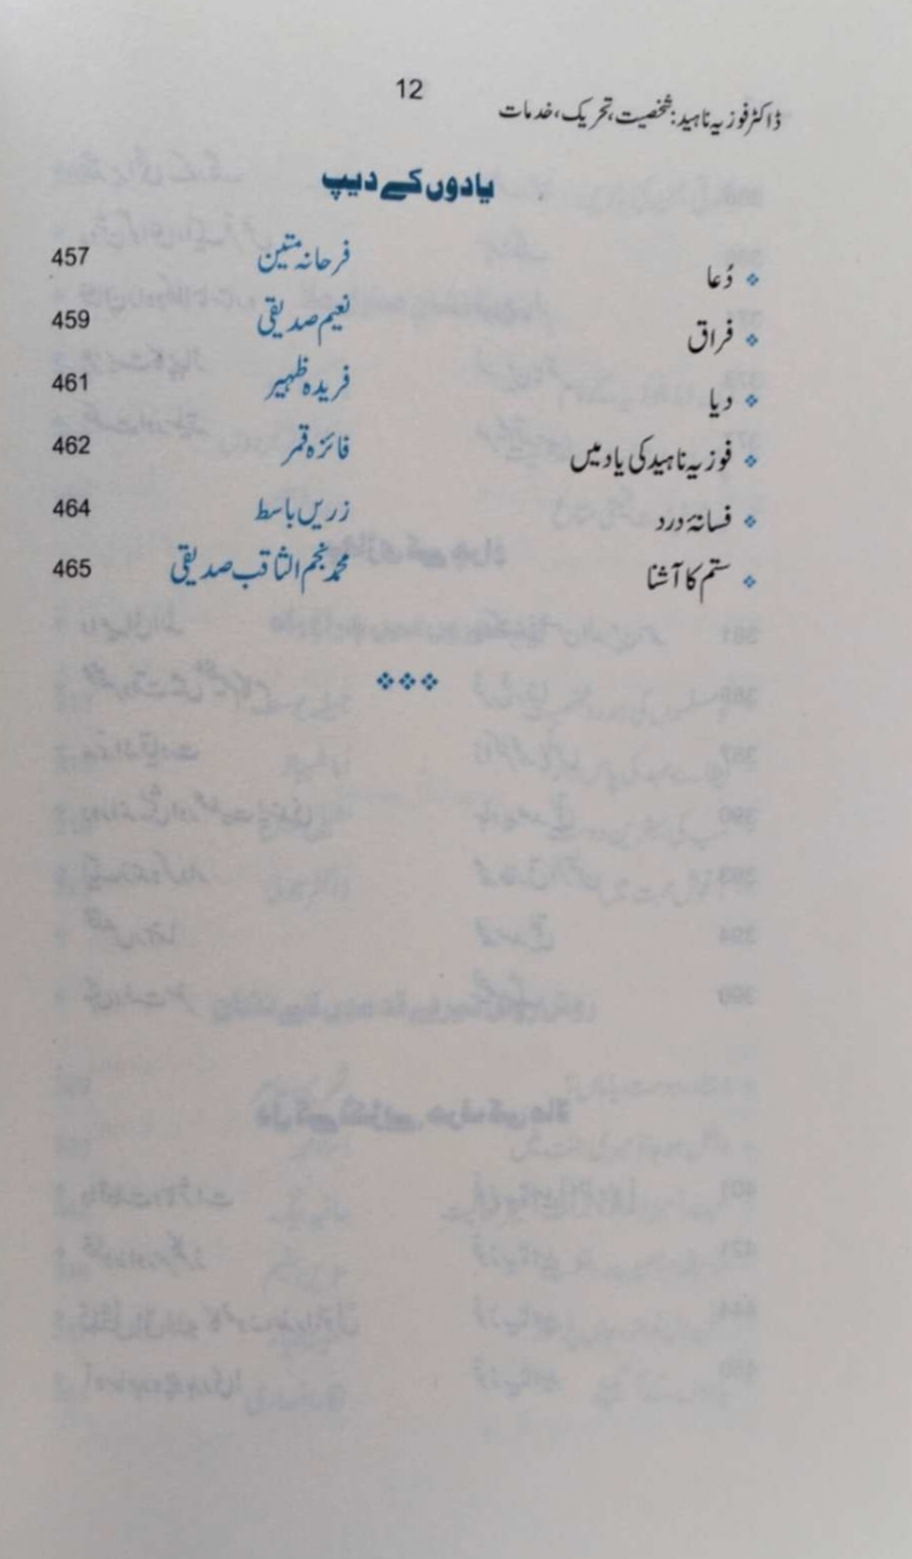 12
ڈاکٹر فوزیہ ناہید: شخصیت، تحریک، خدمات
یادوں کے دیپ
❖ دُعا فرحانہ متین 457
❖ فراق نعیم صدیقی 459
❖ دیا فریدہ ظہیر 461
❖ فوزیہ ناہید کی یاد میں فائزہ قمر 462
❖ فسانۂ درد زریں باسط 464
❖ ستم کا آشنا محمد نجم الثاقب صدیقی 465
❖❖❖